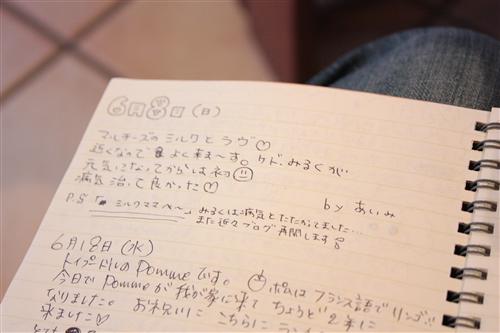 6月8日（日）
マルチーズのミルクとラヴ♡
近くなので よく来ま〜す。ケド、みるくが…
元気になってからはネ
病気治って良かった♡
by あいみ
P.S 「ミルクママへ〜」みるくは病気とたたかってました…
また近々ブログ再開します
6月18日（水）
トイプードルのPommeです。 松は フランス語で リンゴ
今日で Pommeが 我が家に来て ちょうど 2年に
なりました。 お祝いに こちらに ラン
来ました♡